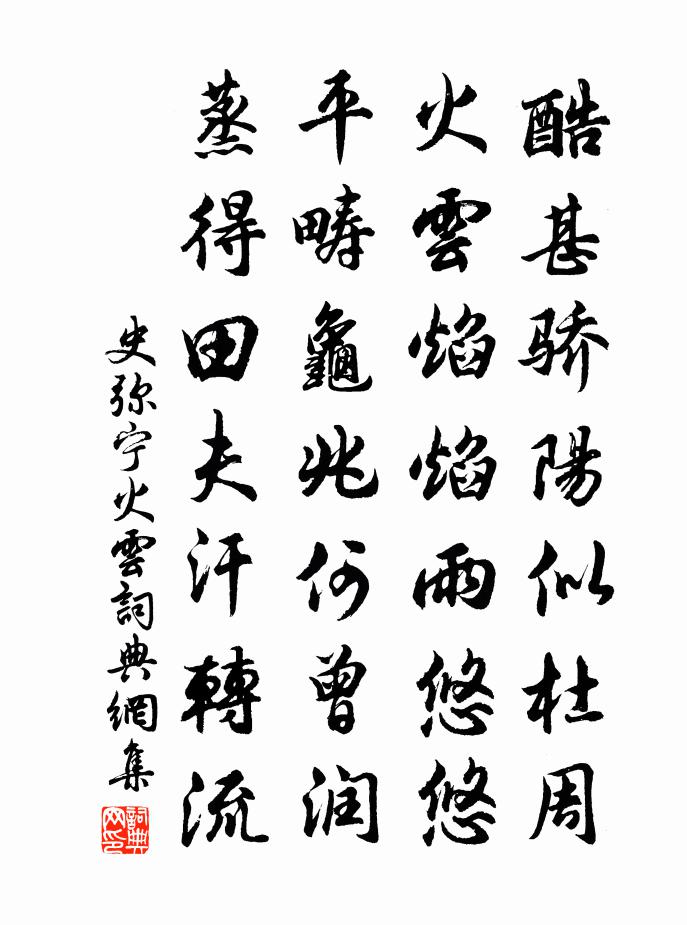 酷甚骄陽似杜周
火雲焰焰雨悠悠
平畴龜兆何曾润
蒸得田夫汗轉流
史弥宁火雲詞典網集
詞典网印